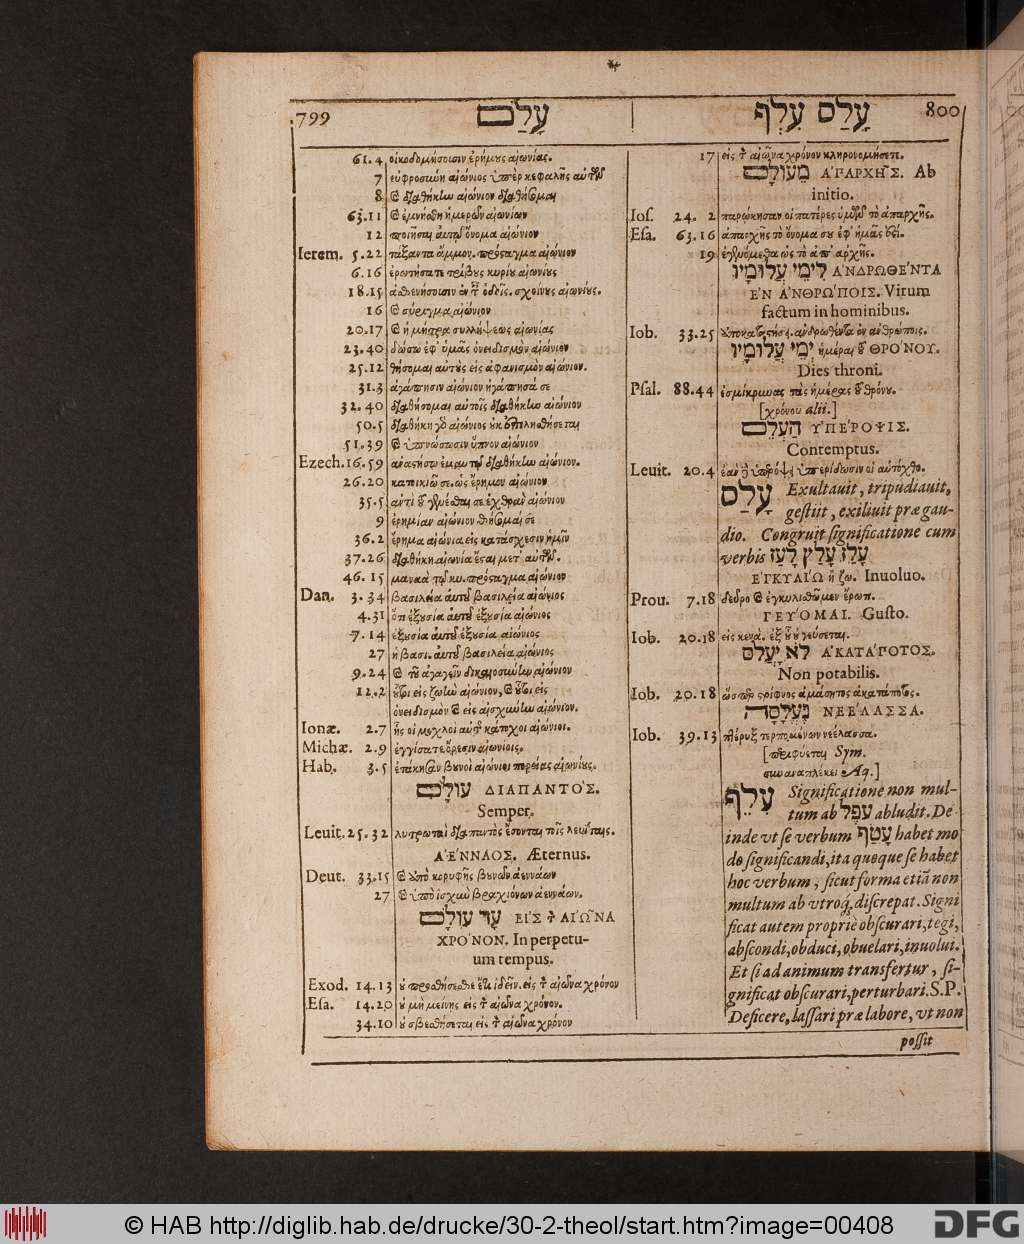 799 עָלַם
61.4 οἰκοδομήσουσιν ἐρήμους αἰωνίας.
7 εὐφροσύνη αἰώνιος ὑπὲρ κεφαλῆς αὐτῶν
8 καὶ διαθήκην αἰώνιον διαθήσομαι
63.11 καὶ ἐμνήσθη ἡμερῶν αἰωνίων
12 ποιῆσαι αὐτῷ ὄνομα αἰώνιον
Ierem. 5.22 τάξαντα ἄμμον. πρόσταγμα αἰώνιον
6.16 ἐρωτήσατε τρίβους κυρίου αἰωνίους
18.15 ἀσθενήσουσιν ἐν ταῖς ὁδοῖς. σχοίνους αἰωνίους.
16 καὶ σύριγμα αἰώνιον
20.17 καὶ ἡ μήτρα συλλήψεως αἰωνίας
23.40 δώσω ἐφ' ὑμᾶς ὀνειδισμὸν αἰώνιον
25.12 θήσομαι αὐτοὺς εἰς ἀφανισμὸν αἰώνιον.
31.3 ἀγάπησιν αἰώνιον ἠγάπησά σε
32.40 διαθήσομαι αὐτοῖς διαθήκην αἰώνιον
50.5 διαθήκη γὰρ αἰώνιος οὐκ ἐπιλησθήσεται
51.39 καὶ ὑπνώσωσιν ὕπνον αἰώνιον
Ezech. 16.59 ἀναστήσω ἐμαυτῷ διαθήκην αἰώνιον.
26.20 κατοικιῶ σε. ὡς ἔρημον αἰώνιον
35.5 ἀντὶ τοῦ γενέσθαι σε ἐχθρὰν αἰώνιον
9 ἐρημίαν αἰώνιον θήσομαί σε
36.2 ἔρημα αἰώνια εἰς κατάσχεσιν ἡμῖν
37.26 διαθήκη αἰωνία ἔσται μετ' αὐτῶν.
46.15 μαναὰ τῷ κυ. πρόσταγμα αἰώνιον
Dan. 3.34 βασιλεία αὐτοῦ βασιλεία αἰώνιος
4.31 ὅτι ἐξουσία αὐτοῦ ἐξουσία αἰώνιος
7.14 ἐξουσία αὐτοῦ ἐξουσία αἰώνιος
27 ἡ βασι. αὐτοῦ βασιλεία αἰώνιος
9.24 καὶ τοῦ ἀγαγεῖν δικαιοσύνην αἰώνιον
12.2 οὗτοι εἰς ζωὴν αἰώνιον, καὶ οὗτοι εἰς
ὀνειδισμὸν καὶ εἰς αἰσχύνην αἰώνιον.
Ionæ. 2.7 ἧς οἱ μοχλοὶ αὐτῆς κάτοχοι αἰώνιοι.
Michæ. 2.9 ἐγγίσατε ὄρεσιν αἰωνίοις.
Hab. 3.5 ἐτάκησαν βουνοὶ αἰώνιοι πορείας αἰωνίους.
עוֹלָם ΔΙΑΠΑΝΤΟ'Σ.
Semper.
Leuit. 25.32 λυτρωταὶ διαπαντὸς ἔσονται τοῖς λευίταις.
ἈΈΝΝΑΟΣ. Æternus.
Deut. 33.15 καὶ ἀπὸ κορυφῆς βουνῶν ἀεννάων
27 καὶ ὑπὸ ἰσχὺν βραχιόνων ἀεννάων.
עַד עוֹלָם ΕἸΣ τ ΑἸΩ͂ΝΑ
ΧΡΟ'ΝΟΝ. In perpetu-
um tempus.
Exod. 14.13 οὐ προσθήσεσθε ἔτι ἰδεῖν. εἰς τὸν αἰῶνα χρόνον
Esa. 14.20 οὐ μὴ μείνῃς εἰς τὸν αἰῶνα χρόνον.
34.10 οὐ σβεσθήσεται εἰς τὸν αἰῶνα χρόνον
עָלַס עִלֵּף 800
17 εἰς τὸν αἰῶνα χρόνον κληρονομήσετε.
מֵעוֹלָם ἈΠ'ΑΡΧΗ͂Σ. Ab
initio.
Ios. 24. 2 παρῴκησαν οἱ πατέρες ὑμῶν τὸ ἀπαρχῆς.
Esa. 63.16 ἀπαρχῆς τὸ ὄνομα σου ἐφ' ἡμᾶς ἐστί.
19 ἐγενόμεθα ὡς τὸ ἀπ' ἀρχῆς.
לִימֵי עֲלוּמָיו ἈΝΔΡΩΘΈΝΤΑ
ἘΝ ἈΝΘΡΩ'ΠΟΙΣ. Virum
factum in hominibus.
Iob. 33.25 ἀποκαταστήσῃ. ἀνδρωθέντα ἐν ἀνθρώποις.
יְמֵי עֲלוּמָיו ἡμέραι τοῦ ΘΡΟ'ΝΟΥ.
Dies throni.
Psal. 88.44 ἐσμίκρυνας τὰς ἡμέρας τοῦ θρόνου.
[χρόνου alii.]
הַעְלֵם ὙΠΕΡΟΨΙΣ.
Contemptus.
Leuit. 20.4 ἐὰν δὲ ὑπερόψει ὑπερίδωσιν οἱ αὐτόχθο.
עָלַס Exultauit, tripudiauit,
gestiit, exiliuit præ gau-
dio. Congruit significatione cum
verbis עָלַז עָלַץ לָעַז
ἘΓΚΥΛΙ'Ω ἢ ζω. Inuoluo.
Prou. 7.18 δεῦρο καὶ ἐγκυλισθῶμεν ἔρωτι.
ΓΕΥ'ΟΜΑΙ. Gusto.
Iob. 20.18 εἰς κενὰ. ἐξ οὗ οὐ γεύσεται.
לֹא יַעֲלֹס ἈΚΑΤΆΠΟΤΟΣ.
Non potabilis.
Iob. 20.18 ὥσπερ στρίφνος ἀμάσητος ἀκατάποτος.
נֶעֱלָסָה ΝΕΕΛΑΣΣΑ.
Iob. 39.13 πτέρυξ τερπομένων νεέλασσα.
[περιφύεται Sym.
συναναπλέκει Aq.]
עִלֵּף Significatione non mul-
tum ab עָפֵל abludit. De
inde vt se verbum עָטַף habet mo
do significandi, ita quoque se habet
hoc verbum, sicut forma etiã non
multum ab vtroq́. discrepat. Signi
ficat autem propriè obscurari, tegi,
abscondi, obduci, obuelari, inuolui.
Et si ad animum transfertur, si-
gnificat obscurari, perturbari. S.P.
Deficere, lassari præ labore, vt non
possit
© HAB http://diglib.hab.de/drucke/30-2-theol/start.htm?image=00408
DFG